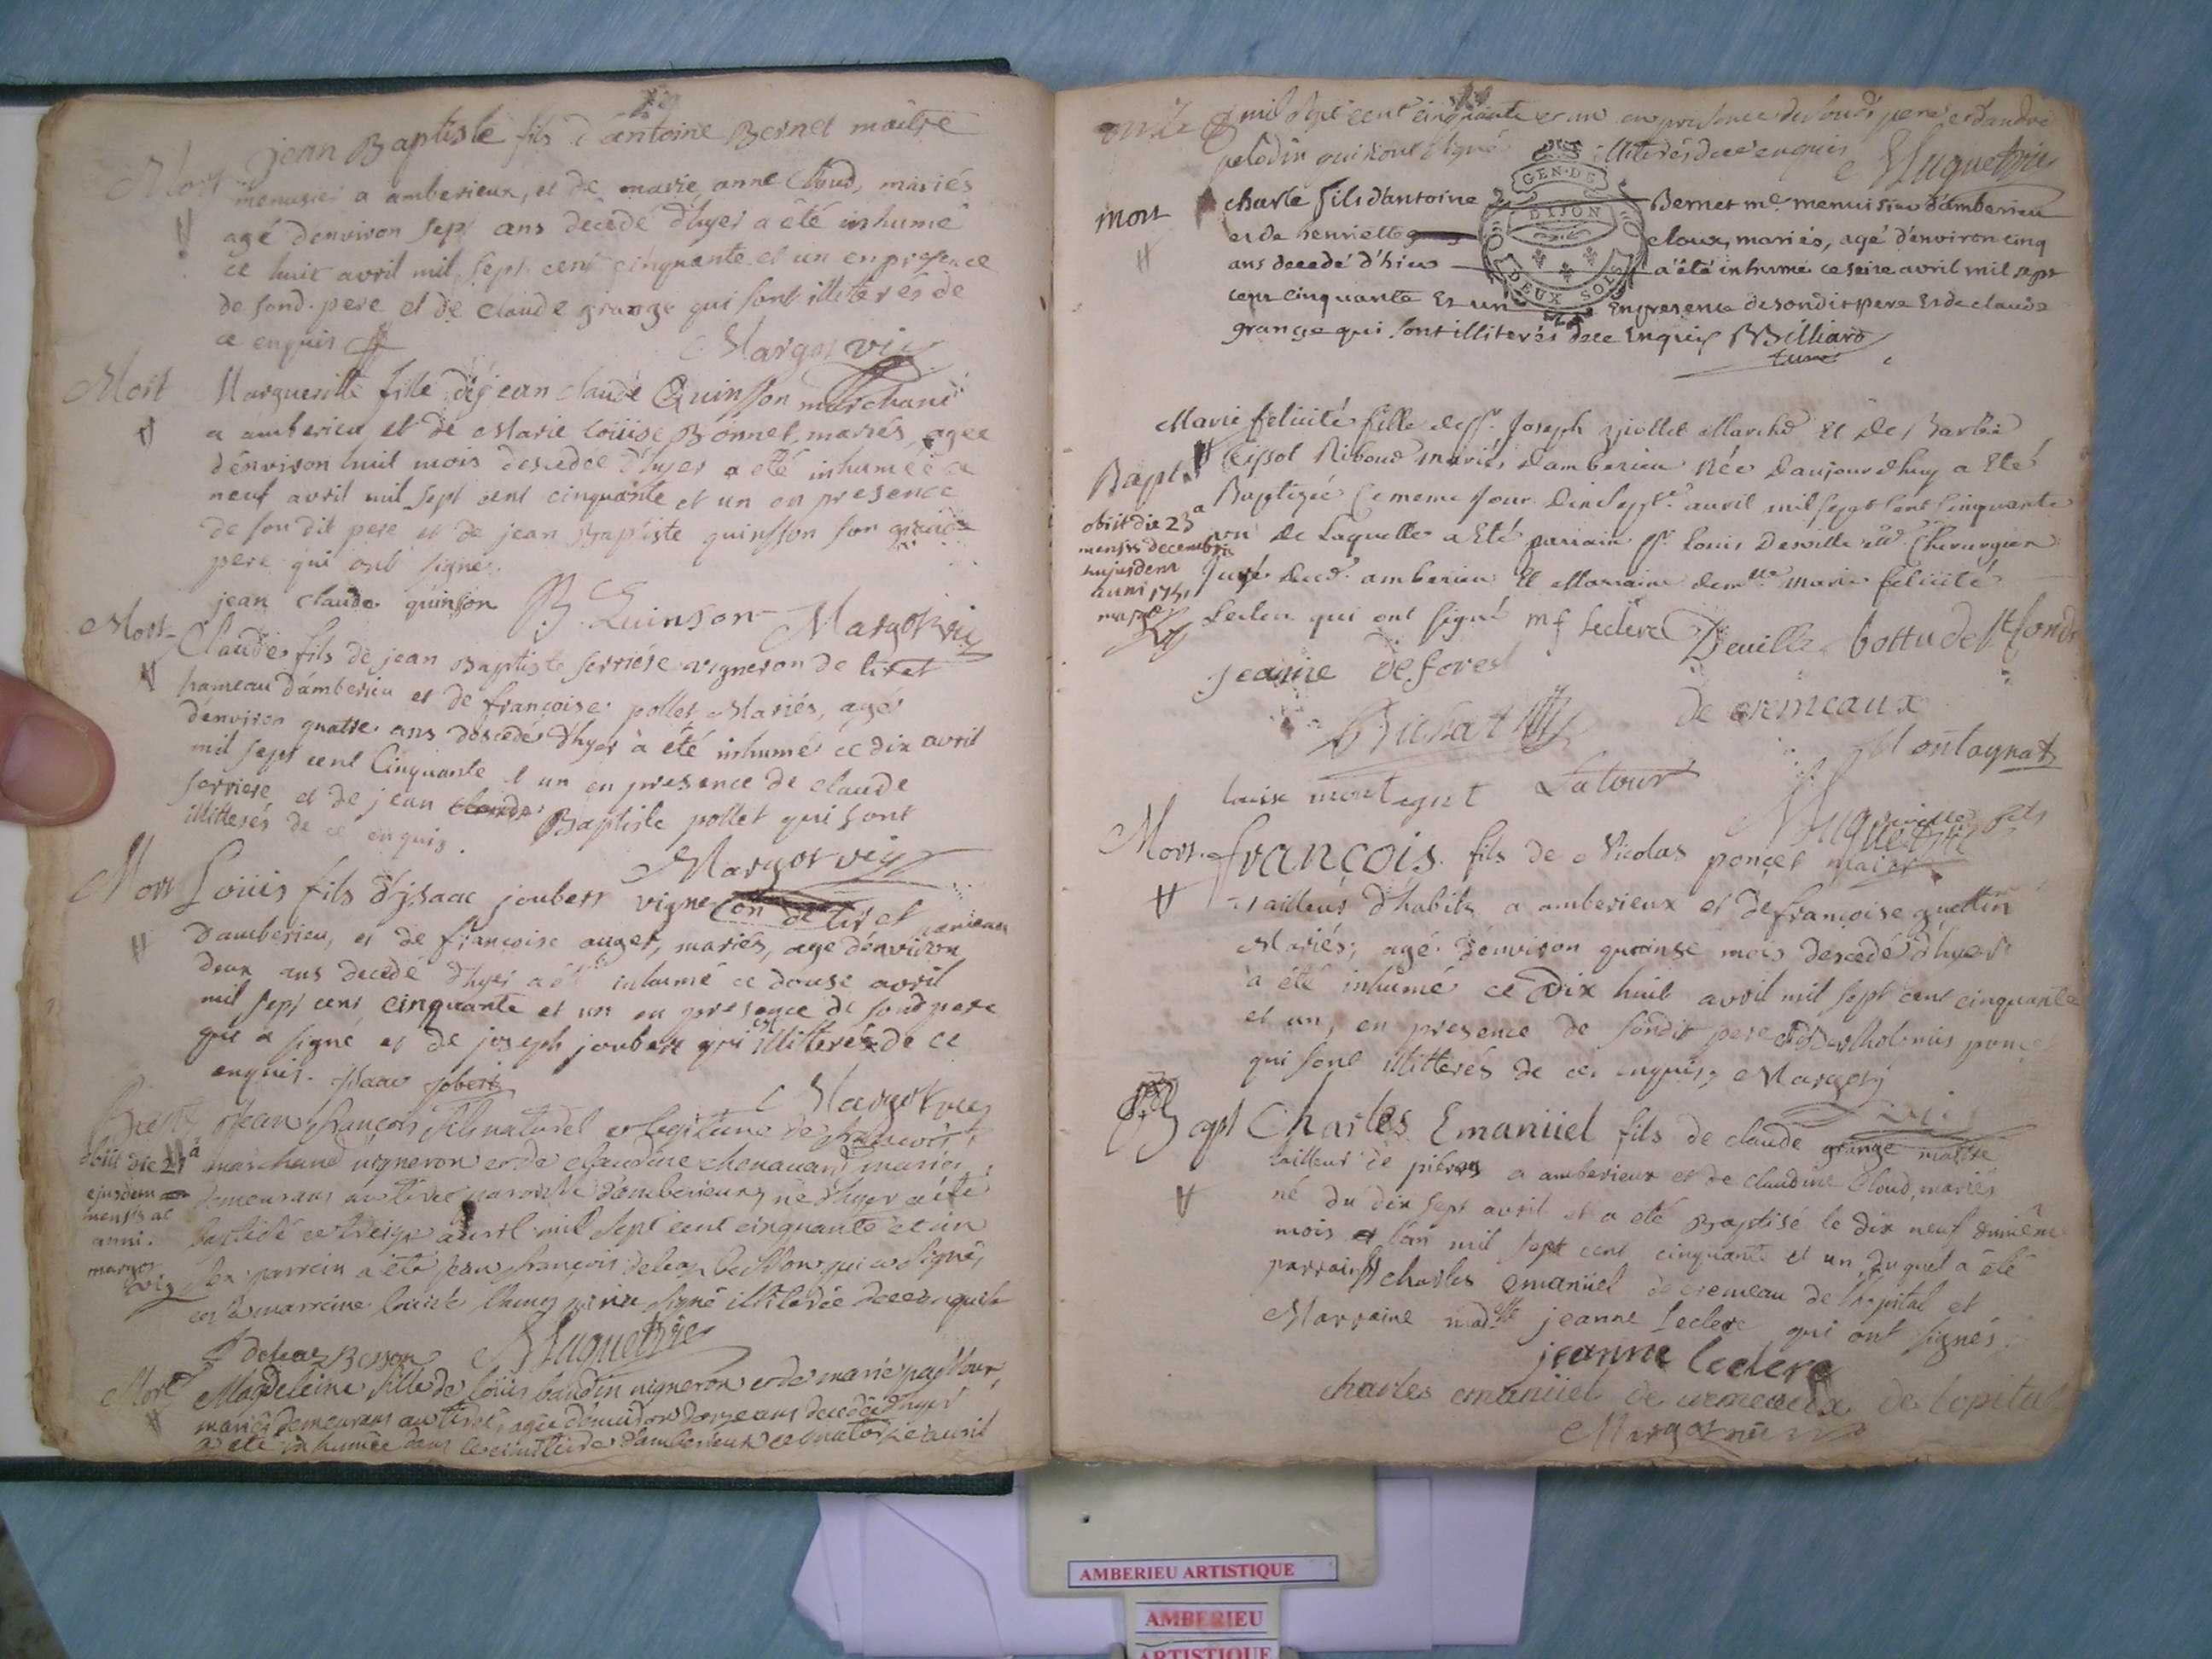 Mort
jean Baptiste fils d'antoine Bernet maitre
menusier a amberieux, et de marie anne Cloud, mariés
agé d'environ sept ans décedé d'hyer a été inhumé
ce huit avril mil sept cent cinquante et un en presence
de sond. pere et de claude grange qui sont illiterés de
ce enquis
Margot vic
Mort
Margueritte fille de jean claude Quinsson marchand
a amberieu et de Marie Loüise Bonnet, mariés, agée
d'environ huit mois descedée d'hyer a été inhumée ce
neuf avril mil sept cent cinquante et un en presence
de son dit pere et de jean Baptiste quinsson son grand
pere qui ont signe.
jean claude quinsson B. Quinson Margot vic
Mort
Claude fils de jean Baptiste ferriere vigneron de tiret
hameau d'amberieu et de françoise pollet, Mariés, agé
d'environ quatre ans descedé d'hyer à été inhumé ce dix avril
mil sept cent Cinquante et un en presence de claude
ferriere et de jean claude Baptiste pollet qui sont
illitterés de ce enquis.
Margot vic
Mort
Loüis fils d'jsaac joubert vigneron de tiret
D'amberieu, et de françoise auger, mariés, age d'environ
deux ans decedé d'hyer a été inhumé ce douse avril
mil sept cent cinquante et un en presence de sond pere
qui a signé et de joseph joubert qui est illiteré de ce
enquis. isaac jobert
Margot vic
Bapt
obiit die 21a
ejusdem
mensis ac
anni.
margot
vic
Jean françois fils naturel et legitime de françois
marchand vigneron et de claudine chenavard mariés
demeurans au tiret parroisse d'amberieux, né d'hyer a été
baptisé ce treize avril mil sept cent cinquante et un
son parrein a été jean françois qui a signé,
et la marreine qui n'a signé illiterée de ce enquise
Huguet vic
Mort
Magdeleine fille de loüis baudin vigneron et de marie
mariés demeurans au tiret, agée d'environ onze ans decedée d'hyer
a été inhumée dans le cimetiere d'amberieux ce quatorze avril
mil sept cent cinquante et un en presence de pere et d'andré
qui n'ont signé illiterés de ce enquis
Huguet vic
mort
GEN. DE DIJON DEUX SOLS
charle fils d'antoine Bernet me. menuisier d'amberieu
et de henriette cloux, mariés, agé d'environ cinq
ans decedé d'hier a été inhumé ce seize avril mil sept
cent cinquante et un en presence de sondit pere et de claude
grange qui sont illiterés de ce enquis Billiard
curé
Bapt.
obiit die 23a
mensis decembris
hujusdem
anni 1751
Marie felicité fille de sr. Joseph Marchd et de
Riboud mariés d'amberieu née d'aujourdhuy a été
Baptizée ce meme jour dixsept avril mil sept cent cinquante
un de Laquelle a été parrain sr. Louis Deville Chirurgien
Juré dud. amberieu et Marraine demlle Marie felicité
Leclerc qui ont signé m f leclerc Deville bottu de st fonds
jeanne deforest
Bichat de cremeaux
Montagnat
Louise montagnat Latour
deville fils
Huguet vic
Mort.
françois fils de Nicolas ponçet maitre
tailleur d'habits a amberieux et de françoise guettin
Mariés; agé d'environ quinse mois descedé d'hyer
à été inhumé ce Dix huit avril mil sept cent cinquante
et un, en presence de sondit pere et de Bartholomé ponçet
qui sont illitterés de ce enquis Margot
vic
Bapt
Charles Emanüel fils de claude grange maitre
tailleur de pierres a amberieux et de claudine Cloud, mariés
né du dix sept avril et a été Baptisé le dix neuf du même
mois et l'an mil sept cent cinquante et un duquel a été
parrain sr charles emanüel de cremeau de l'hopital et
Marraine madlle jeanne Leclerc qui ont signés.
jeanne leclerc
charles emanüel de cremeaux de lopital
Margot vic
AMBERIEU ARTISTIQUE
AMBERIEU
ARTISTIQUE